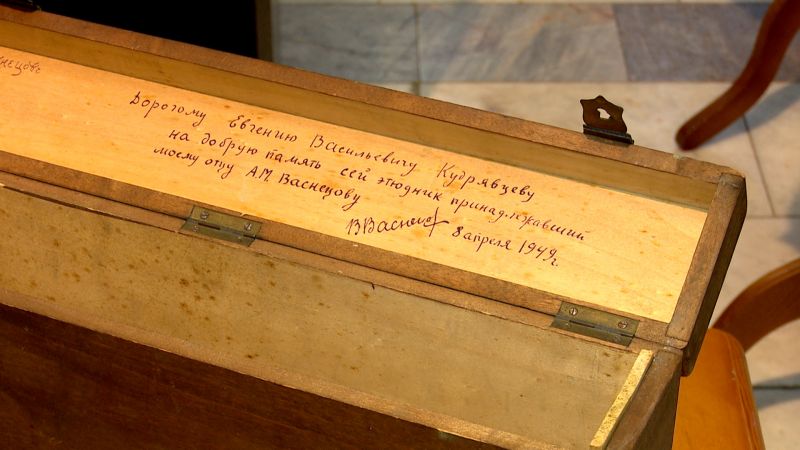 Дорогому Евгению Васильевичу Кудрявцеву
на добрую память сей этюдник принадлежавший
моему отцу А.М. Васнецову
ВВаснецов 8 апреля 1949г.